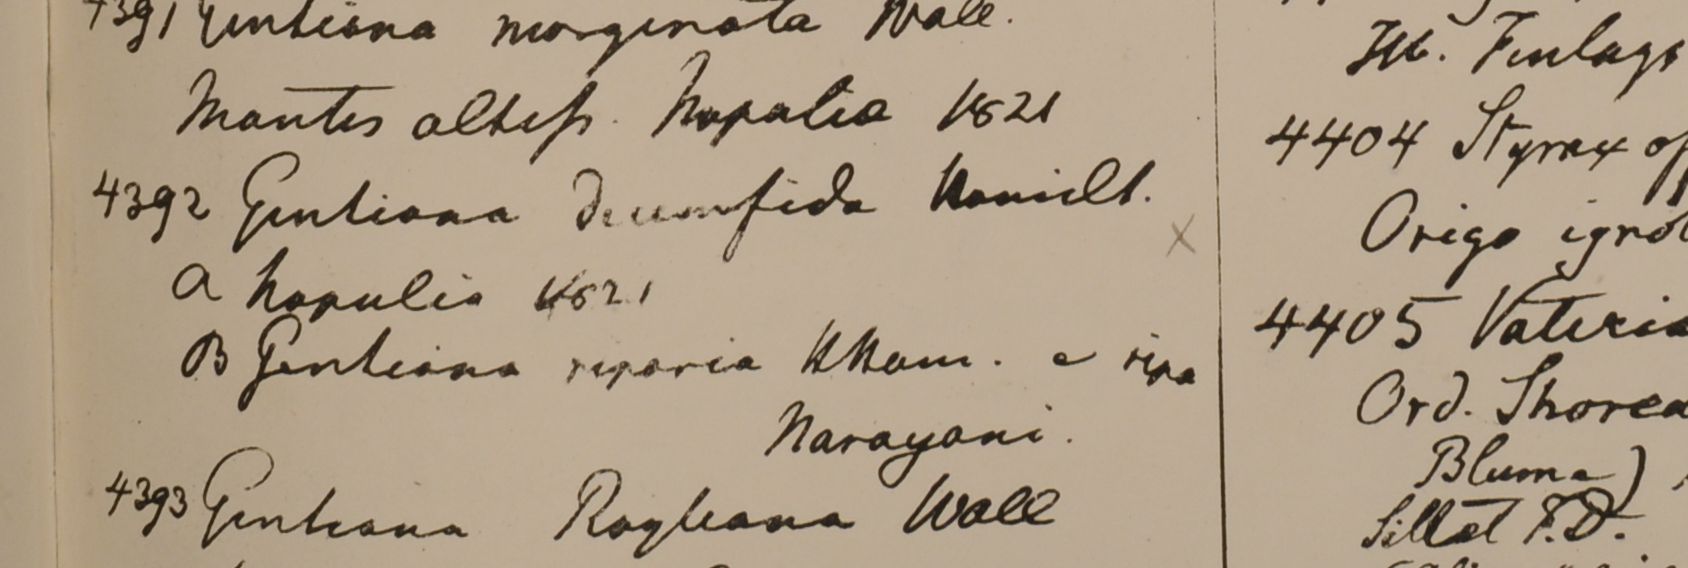 4391 Gentiana marginata Wall.
Montes altiss. Napalia 1821
4392 Gentiana decemfida Hamilt.
a Napulia 1821
B Gentiana riparia HHam. e ripa
Narayani.
4393 Gentiana Royleana Wall
Hb. Finlays
4404 Styrax
Origo ignot
4405 Vateria
Ord. Shorea
Blume)
Sillet F.D.